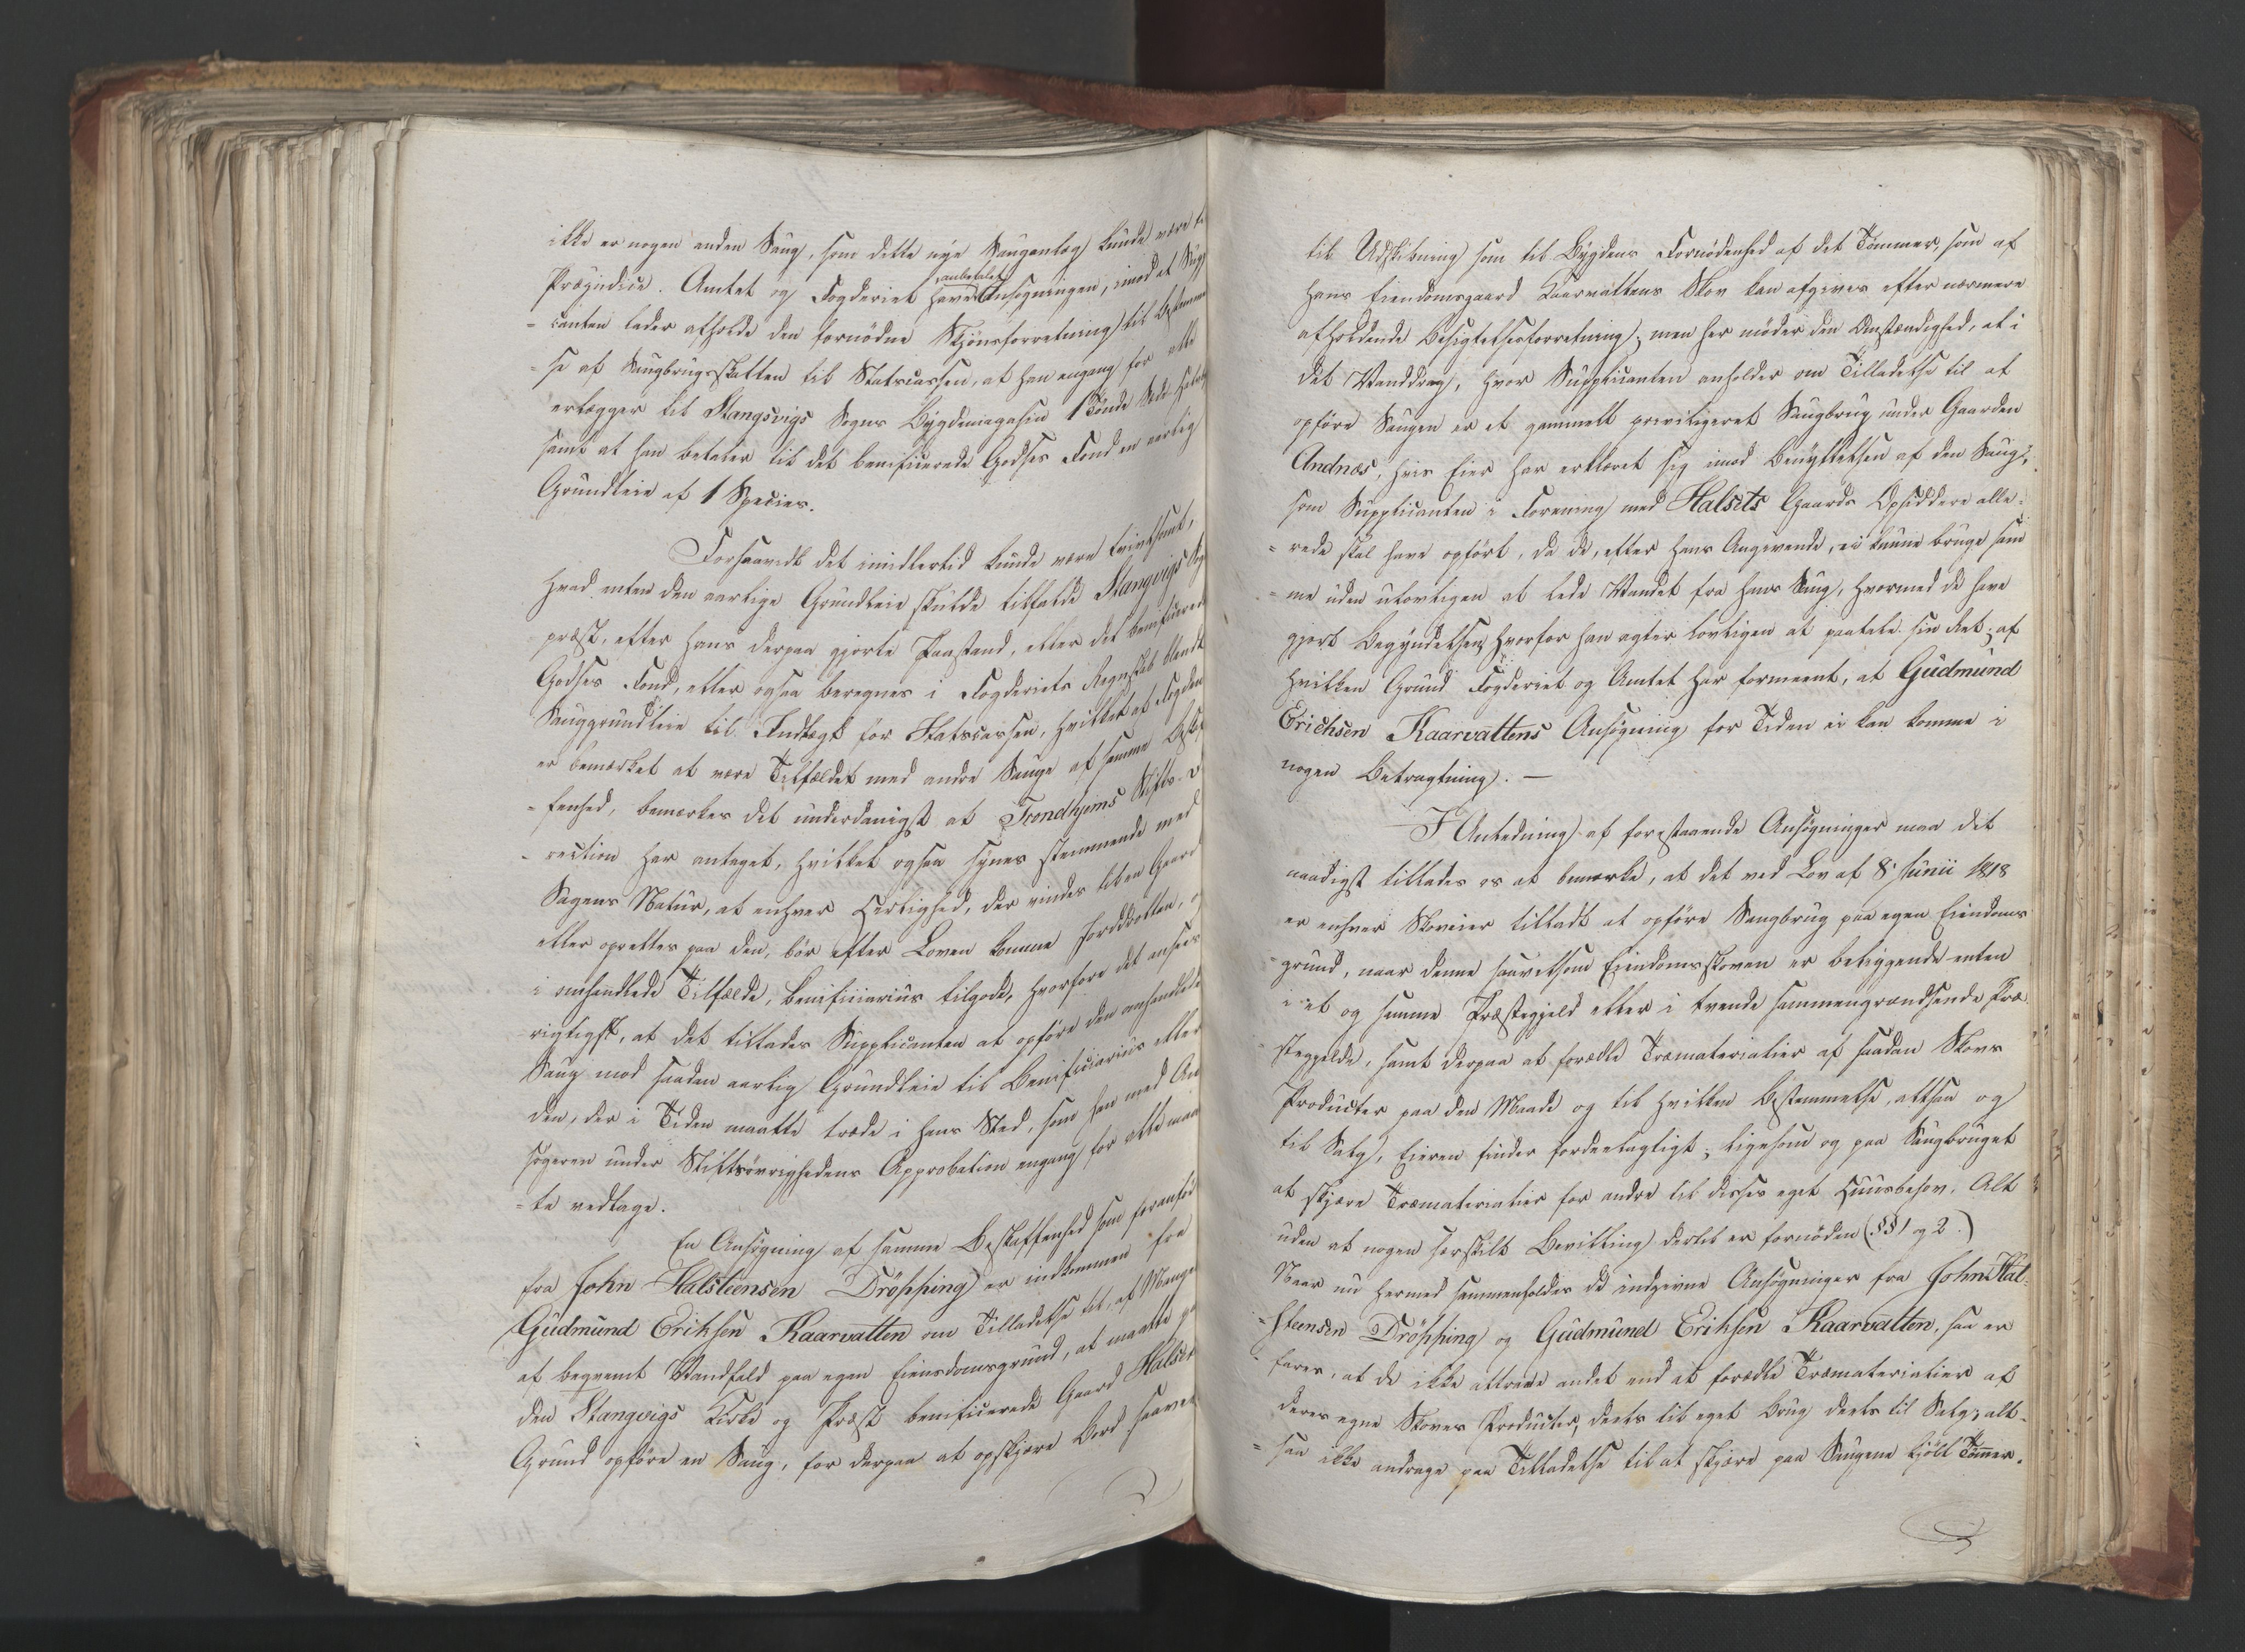 ikke er nogen anden Saug, som dette nye Sauganlæg kunde være til
Præjudice. Amtet og Fogderiet have anbefalet Ansøgningen, imod at Suppl
canten lader afholde den fornødne Skjønsforretning til Bestemmel
se af Saugbrugsskatten til Statscassen, at han engang for alle
erlægger til Stangsvigs Sogns Bygdemagasin 1 Tønde
samt at han betaler til det benificerede Godses Fond en aarlig
Grundleie af 1 Species.
Forsaavidt det imidlertid kunde være tvivlsomt,
hvad enten den aarlige Grundleie skulde tilfalde Stangvigs Sogne
præst, efter hans derpaa gjorte Paastand, eller det benificerede
Godses Fond, eller ogsaa beregnes i Fogderiets Regnskab blandt
Sauggrundleie til Indtægt for Statscassen, hvilket af Fogden
er bemærket at være Tilfældet med andre Sauge af samme Beskaf
=fenhed, bemærkes det underdanigst at Trondhjems Stifts-D
=rection har antaget, hvilket ogsaa synes stemmende med
Sagens Natur, at enhver Herlighed, der vindes til en Gaard
eller oprettes paa den, bør efter Loven komme Jorddrotten, og
i omhandlede Tilfælde, Benificiarius tilgode, hvorfore det ansees
rigtigst, at det tillades Supplicanten at opføre den omhandlede
Saug mod saadan aarlig Grundleie til Benificiarius eller
den, der i Tiden maatte træde i hans Sted, som han med An
søgeren under Stiftsøvrighedens Approbation engang for alle maat
=te vedtage.
En Ansøgning af samme Beskaffenhed som foranført
fra John Halsteensen Drøpping er indkommen fra
Gudmund Eriksen Kaarvatten om Tilladelse til, af Mangel
af beqvemt Vandfald paa egen Eiendomsgrund, at maatte paa
den Stangvigs Kirke og Præst benificerede Gaard Halset
Grund opføre en Saug, for derpaa at opskjære Bord saavel
til Udskibning som til Bygdens Fornødenhed af det Tømmer, som af
hans Eiendomsgaard Kaarvattens Skov kan afgives efter nærmere
afholdende Besigtelsesforretning; men her møder den Omstændighed, at i
det Vanddrag, hvor Supplicanten anholder om Tilladelse til at
opføre Saugen er et gammelt privilegeret Saugbrug under Gaarden
Andnæs, hvis Eier har erklæret sig imod Benyttelsen af den Saug,
som Supplicanten i Forening med Halsets Gaards Opsiddere alle=
=rede skal have opført, da de, efter hans Angivende, ei kunne bruge sam
=me uden ulovligen at lede Vandet fra hans Saug, hvormed de have
gjort Begyndelsen, hvorfor han agter lovligen at paatale sin Ret; af
hvilken Grund Fogderiet og Amtet har formeent, at Gudmund
Erichsen Kaarvattens Ansøgning for Tiden ei kan komme i
nogen Betragtning. —
I Anledning af forestaaende Ansøgninger maa det
naadigst tillades os at bemærke, at det ved Lov af 8 Junii 1818
er enhver Skoveier tilladt at opføre Saugbrug paa egen Eiendoms
grund, naar denne saavelsom Eiendomsskoven er beliggende enten
i et og samme Præstegjeld eller i tvende sammengrændsende Præ
stegjelde, samt derpaa at forædle Træmaterialier af saadan Skovs
Producter paa den Maade og til hvilken Bestemmelse, altsaa og
til Salg, Eieren finder fordeelagtigt; ligesom og paa Saugbruget
at skjære Træmaterialier for andre til disses eget Huusbehov. Alt
uden at nogen særskilt Bevilling dertil er fornøden (§§ 1 og 2.)
Naar nu hermed sammenholdes de indgivne Ansøgninger fra John Hal=
=steensen Drøpping og Gudmund Eriksen Kaarvatten, saa er
fares, at de ikke attraae andet end at forædle Træmaterialier af
deres egne Skoves Producter, deels til eget Brug deels til Salg; alt=
=saa ikke andrage paa Tilladelse til at skjære paa Saugene kjøbt Tømmer.